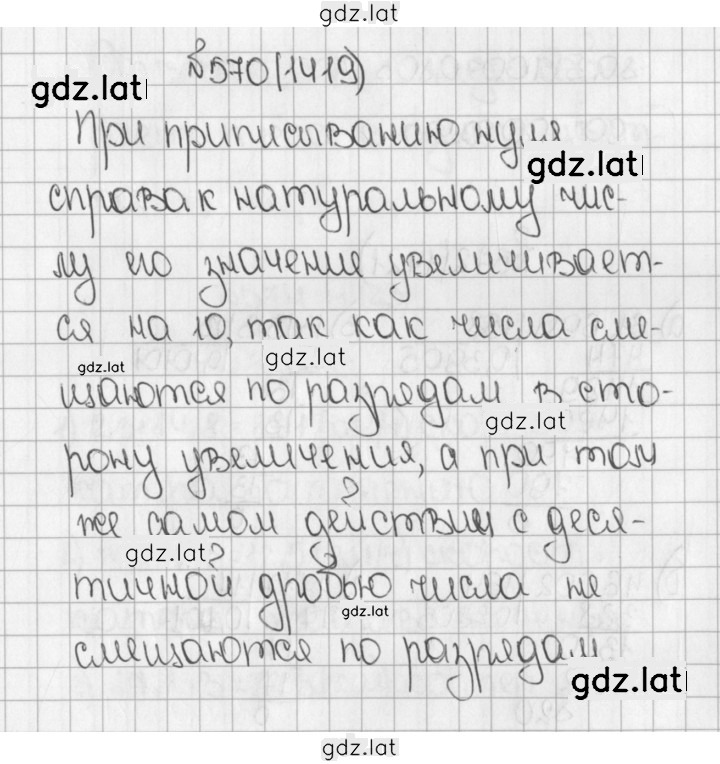 gdz.lat
№570(1419)
gdz.lat
При приписыванию нуля
gdz.lat
справа к натуральному чис-
лу его значение увеличивает-
ся на 10, так как числа сме-
gdz.lat
gdz.lat
щаются по разрядам в сто-
gdz.lat
рону увеличения, а при том
же самом действии с деся-
gdz.lat
тичной дробью числа не
gdz.lat
смещаются по разрядам
gdz.lat
gdz.lat